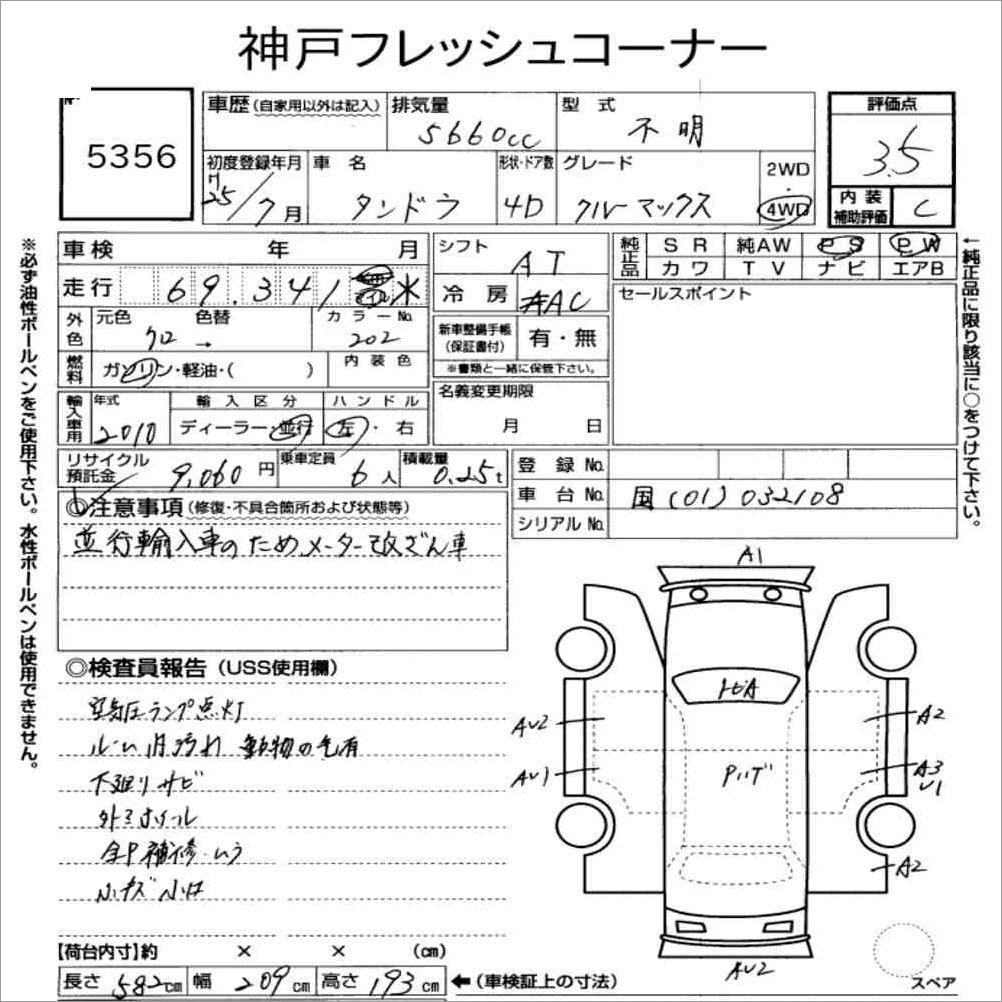 神戸フレッシュコーナー
5356
車歴(自家用以外は記入) 排気量 5660cc 型 式 不明
初度登録年月 H25/7月 車 名 タンドラ 形状・ドア数 4D グレード クルーマックス 2WD・4WD
評価点 3.5
内装補助評価 C
※必ず油性ボールペンをご使用下さい。水性ボールペンは使用できません。
車検 年 月
走行 69.341 マイル
外色 元色 クロ → 色替 カラーNo. 202
燃料 ガソリン・軽油・( ) 内装色
輸入車用 年式 2010 輸入区分 ディーラー・並行 ハンドル 左・右
リサイクル預託金 9,060円 乗車定員 6人 積載量 0.25t
シフト AT
冷房 AAC
新車整備手帳(保証書付) 有・無
※書類と一緒に保管下さい。
名義変更期限 月 日
純正品 SR 純AW PS PW
カワ TV ナビ エアB
セールスポイント
←純正品に限り該当に○をつけて下さい。
登録No.
車台No. 国(01)032108
シリアルNo.
◎注意事項(修復・不具合箇所および状態等)
並行輸入車のためメーター改ざん車
◎検査員報告(USS使用欄)
空気圧ランプ点灯
ルーム内汚れ 動物の毛有
下廻りサビ
外ミ ホイール
全P補修・ムラ
小キズ 小凹
A1
トビA
Pハゲ
AU2
AU1
A2
A3
U1
A2
AU2
スペア
【荷台内寸】約 × × (cm)
長さ 582cm 幅 209cm 高さ 193cm ←(車検証上の寸法)